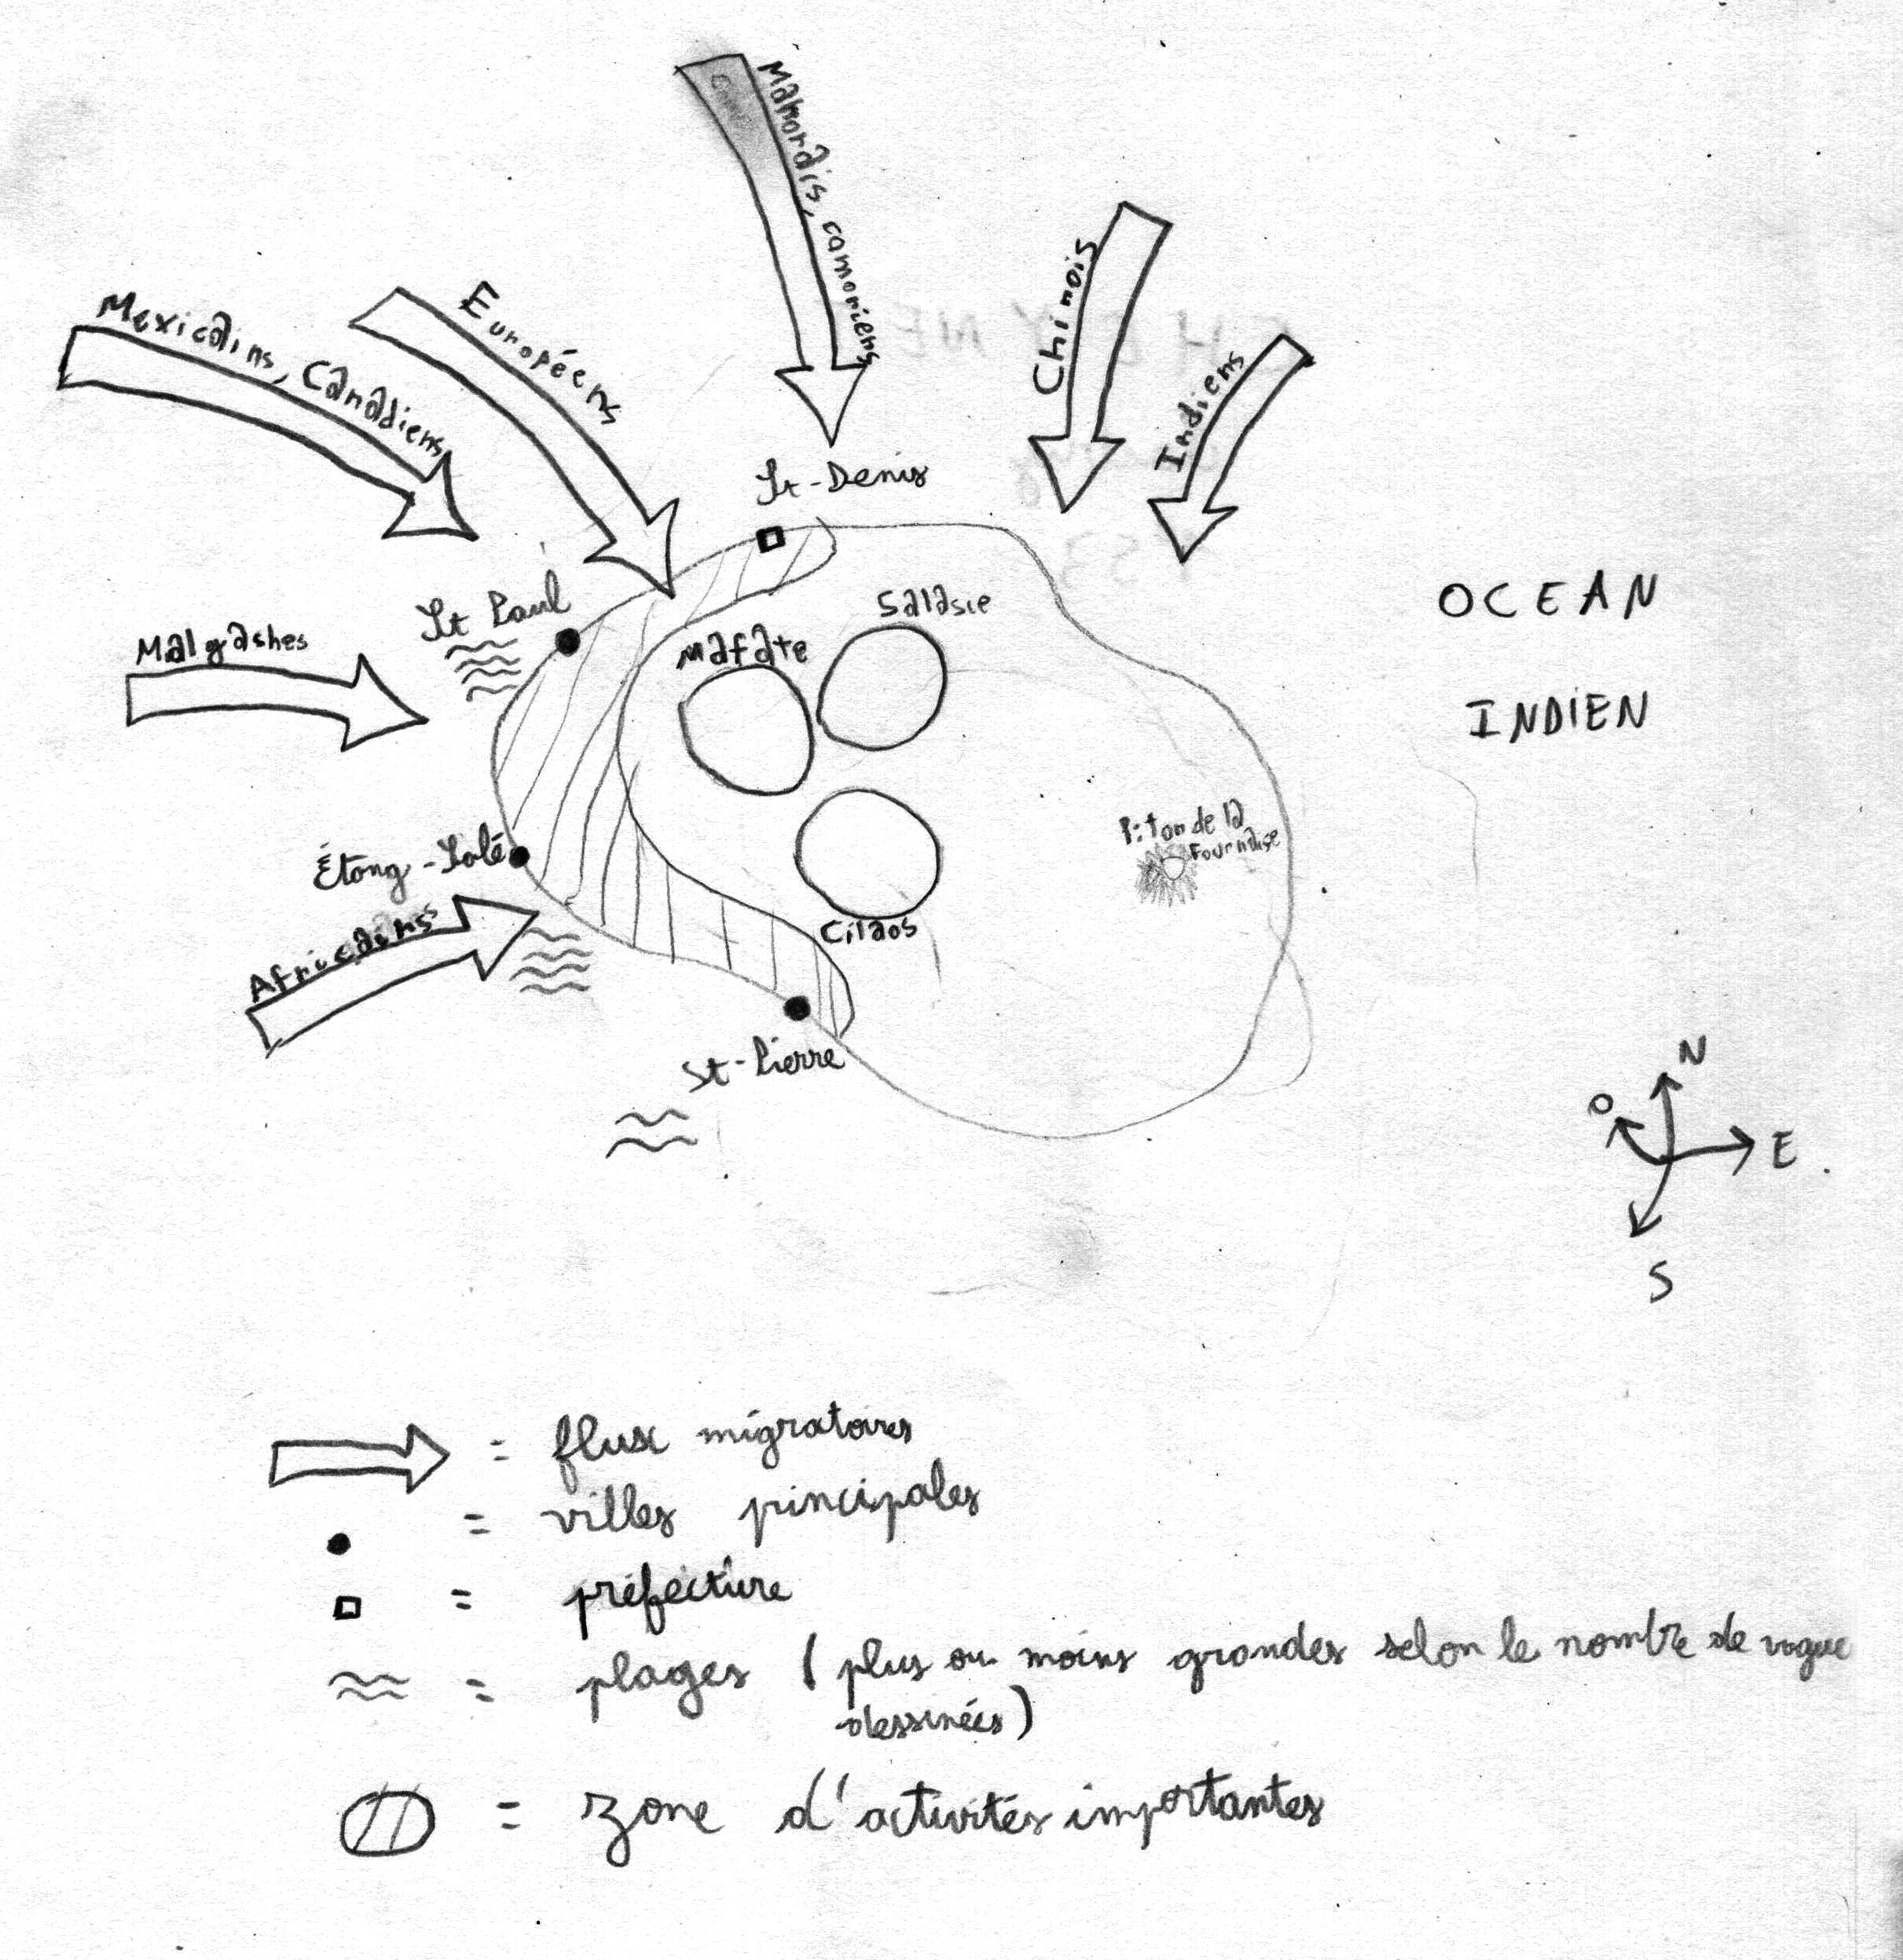 Mahorais, comoriens
Chinois
Européens
Mexicains, Canadiens
Indiens
St-Denis
OCEAN
INDIEN
St Paul
Salasie
Malgaches
Mafate
Piton de la
Fournaise
Étang-Salé
Africains
Cilaos
St-Pierre
N
O
E
S
= flux migratoires
= villes principales
= préfecture
= plages (plus ou moins grandes selon le nombre de vague
dessinées)
= zone d'activités importantes